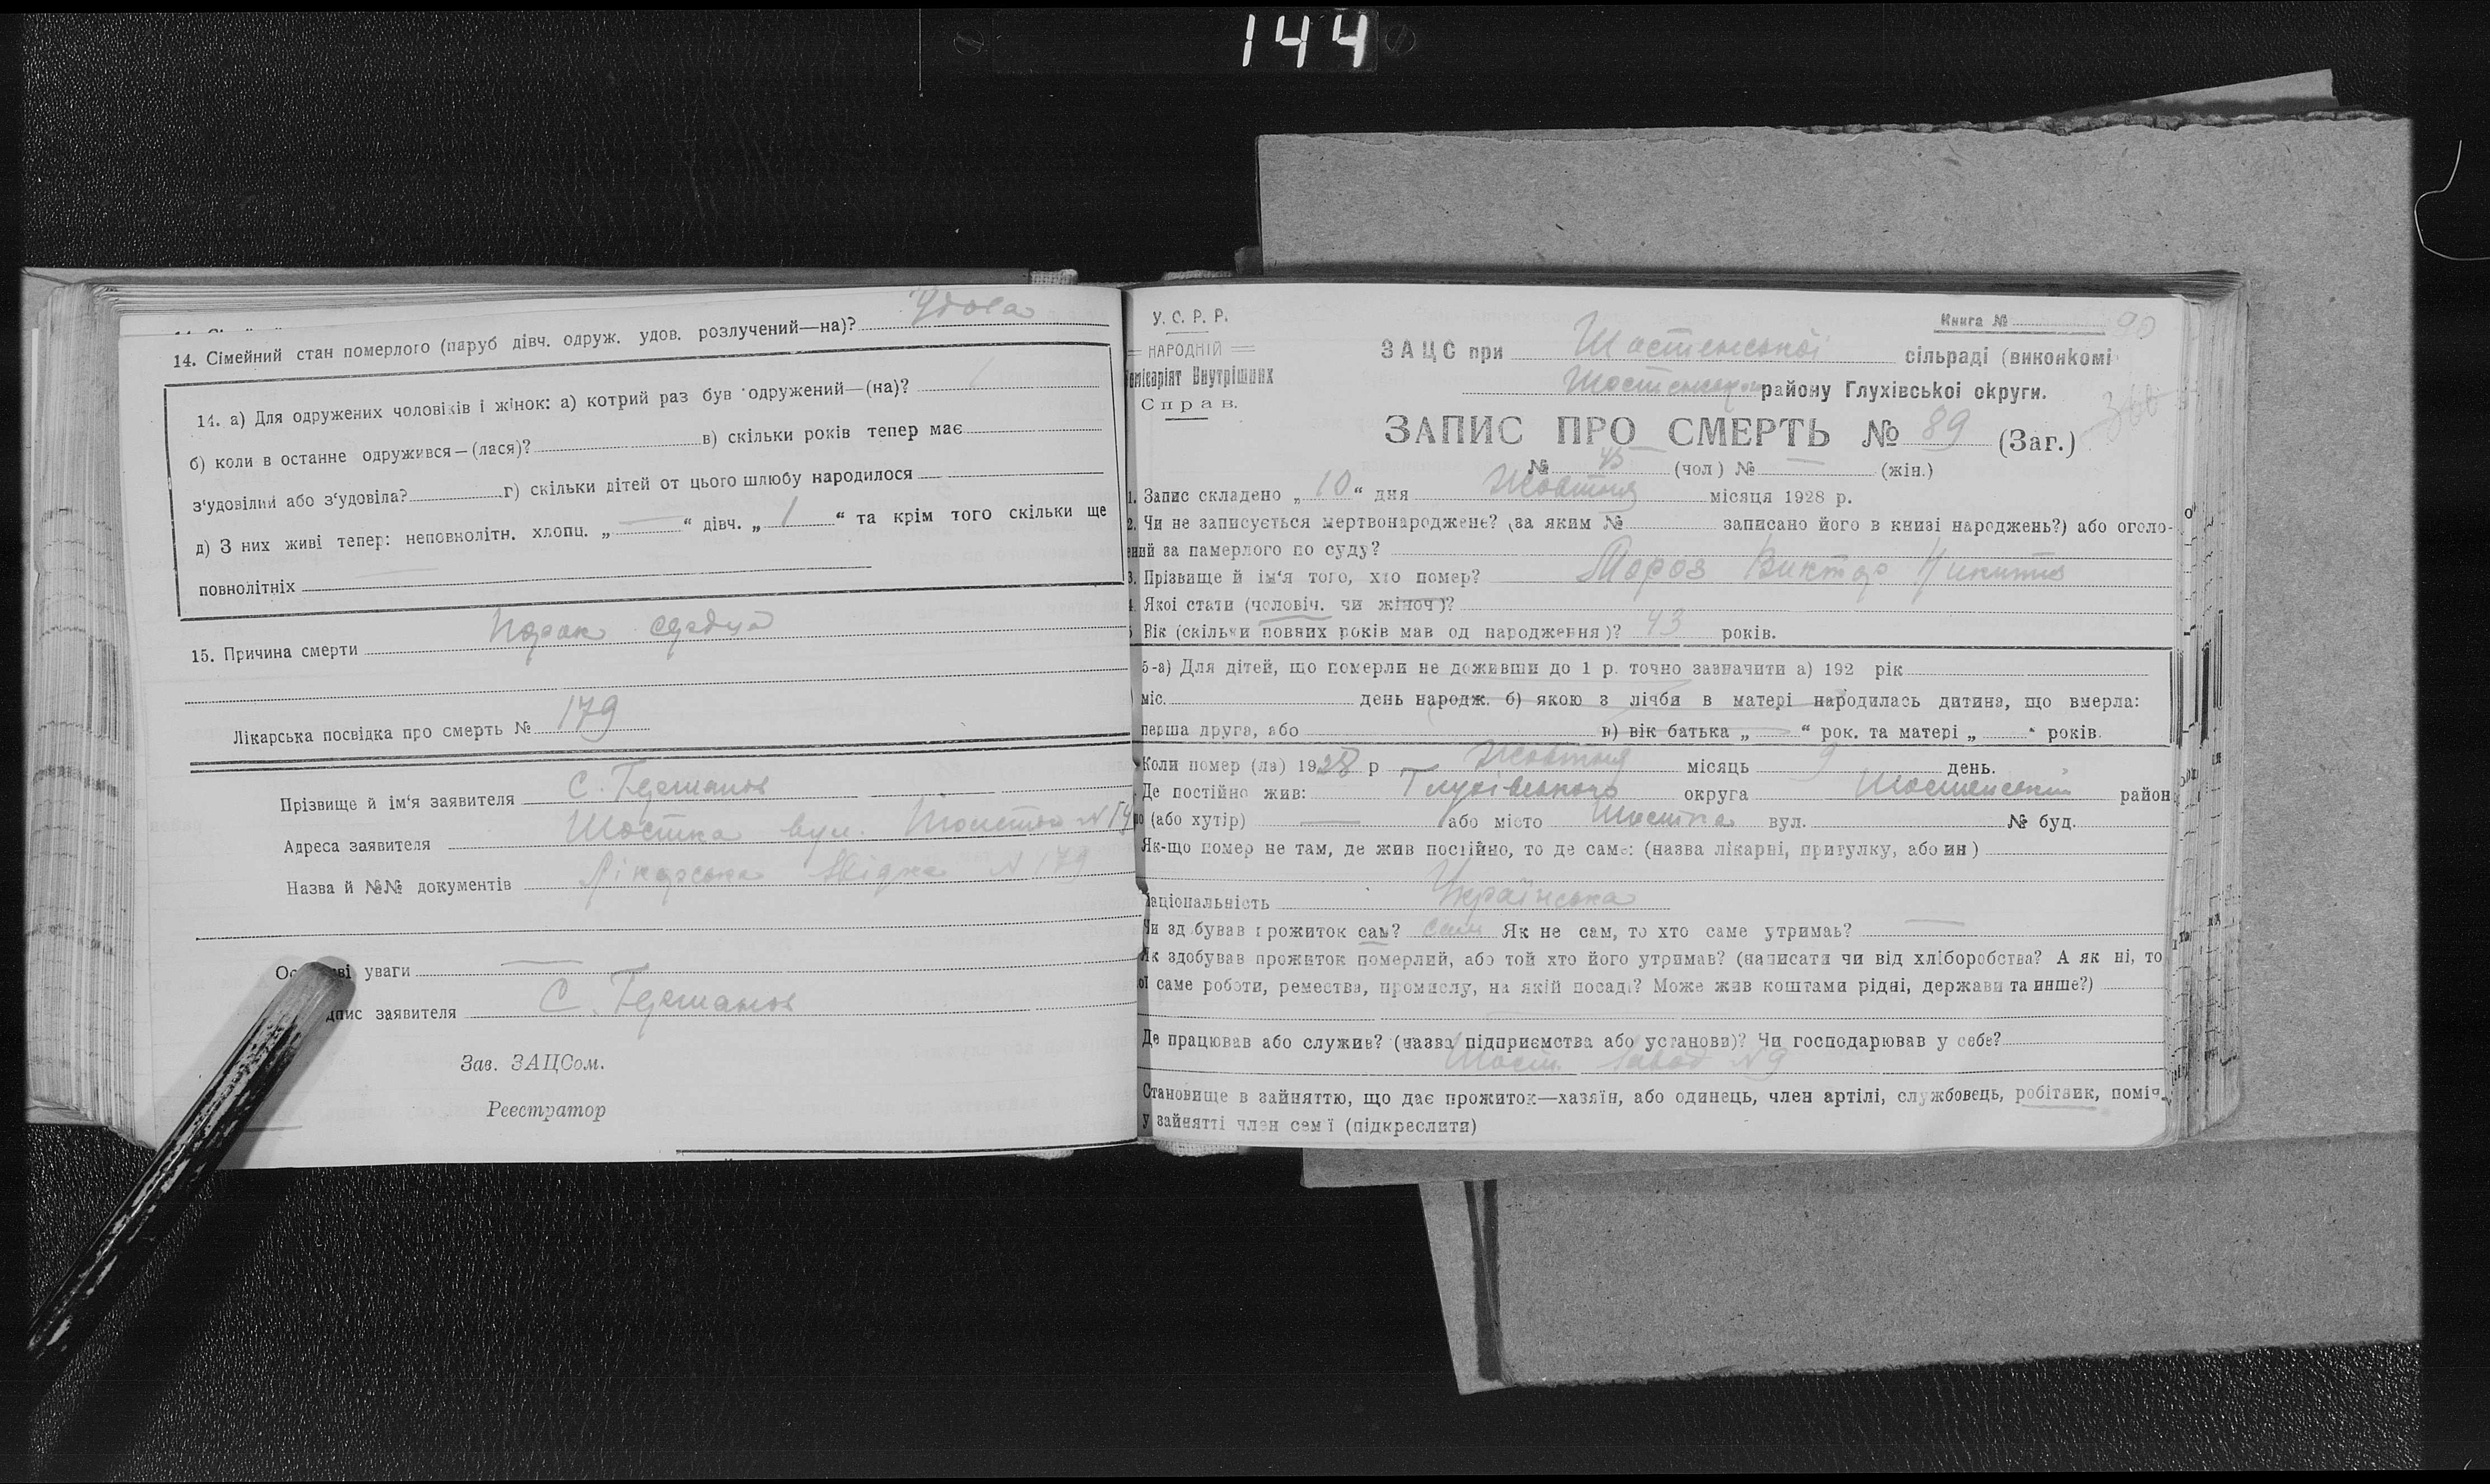 144
14. Сімейний стан померлого (паруб дівч. одруж. удов. розлучений—на)? Удова
14. а) Для одружених чоловіків і жінок: а) котрий раз був одружений—(на)? 1
б) коли в останне одружився—(лася)? в) скільки років тепер має
з'удовілий або з'удовіла? г) скільки дітей от цього шлюбу народилося
д) З них живі тепер: неповнолітн. хлопц. „ — “ дівч. „ 1 “ та крім того скільки ще
повнолітніх
15. Причина смерти Порок сердця
Лікарська посвідка про смерть № 179
Прізвище й ім'я заявителя С.
Адреса заявителя Шостка вул.
Назва й №№ документів Лікарська N 179
уваги —
дпис заявителя С.
Зав. ЗАЦСом.
Реєстратор
У. С. Р. Р.
НАРОДНІЙ
Комісаріят Внутрішних
Справ.
Книга № 90
ЗАЦС при Шостенської сільраді (виконкомі
району Глухівської округи.
ЗАПИС ПРО СМЕРТЬ № 89 (Заг.)
№ 45 (чол) № — (жін.)
1. Запис складено „ 10 “ дня Жовтня місяця 1928 р.
2. Чи не записується мертвонароджене? (за яким № записано його в книзі народжень?) або оголо-
ений за памерлого по суду?
3. Прізвище й ім'я того, хто помер? Мороз Виктор Никитич
Якої стати (чоловіч. чи жіноч)?
Вік (скільки повних років мав од народження)? 43 років.
5-а) Для дітей, що померли не доживши до 1 р. точно зазначити а) 192 рік
міс. день народж. б) якою з лічби в матері народилась дитина, що вмерла:
перша друга, або в) вік батька „ — “ рок. та матері „ “ років.
Коли помер (ла) 1928 р Жовтня місяць 9 день.
Де постійно жив: Глухівського округа Шостенський район
(або хутір) — або місто Шостка вул. № буд.
Як-що помер не там, де жив постійно, то де саме: (назва лікарні, притулку, або ин)
Національність Українська
Чи здобував прожиток сам? сам Як не сам, то хто саме утримав? —
Як здобував прожиток померлий, або той хто його утримав? (написати чи від хліборобства? А як ні, то
ої саме роботи, ремества, промислу, на якій посаді? Може жив коштами рідні, держави та инше?)
Де працював або служив? (назва підприємства або установи)? Чи господарював у себе?
Шост. завод N 9
Становище в зайняттю, що дає прожиток—хазяїн, або одинець, член артілі, службовець, робітник, поміч.
у зайнятті член сем'ї (підкреслити)